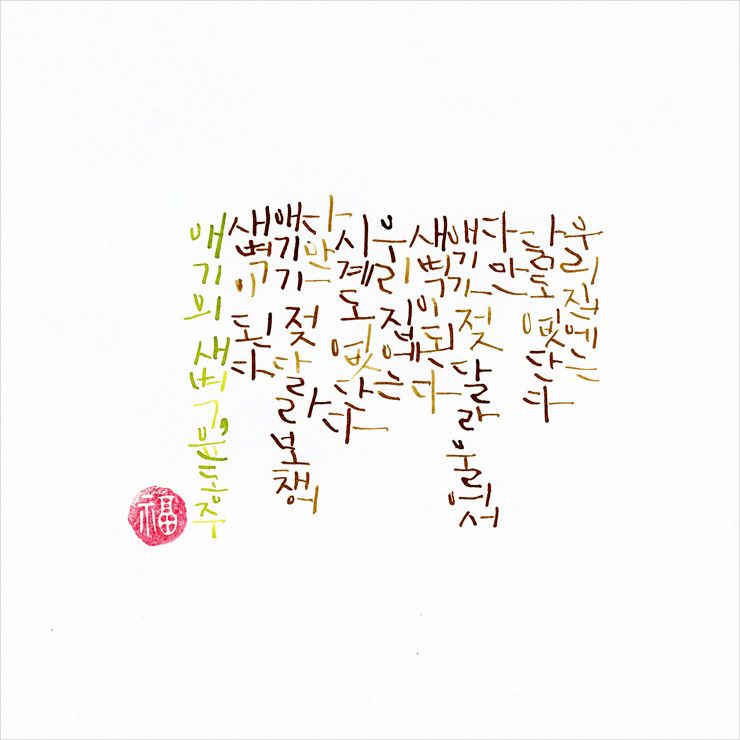 우리집에는
닭도 없단다
다만
애기가 젖달라 울어서
새벽이 된다
우리 집에는
시계도 없단다
다만
애기가 젖달라 보채어
새벽이 된다
애기의 새벽, 윤동주
福